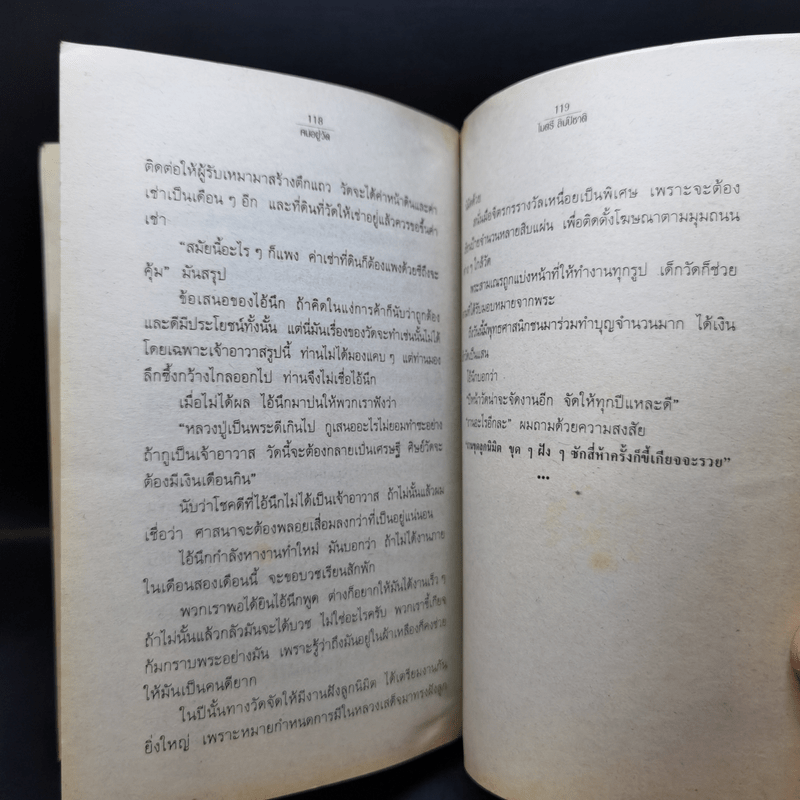 118
คนอยู่วัด
ติดต่อให้ผู้รับเหมามาสร้างตึกแถว วัดจะได้ค่าหน้าดินและค่า
เช่าเป็นเดือน ๆ อีก และที่ดินที่วัดให้เช่าอยู่แล้วควรขอขึ้นค่า
เช่า
“สมัยนี้อะไร ๆ ก็แพง ค่าเช่าที่ดินก็ต้องแพงด้วยซิถึงจะ
คุ้ม” มันสรุป
ข้อเสนอของไอ้นึก ถ้าคิดในแง่การค้าก็นับว่าถูกต้อง
และดีมีประโยชน์ทั้งนั้น แต่นี่มันเรื่องของวัดจะทำเช่นนั้นไม่ได้
โดยเฉพาะเจ้าอาวาสรูปนี้ ท่านไม่ได้มองแคบ ๆ แต่ท่านมอง
ลึกซึ้งกว้างไกลออกไป ท่านจึงไม่เชื่อไอ้นึก
เมื่อไม่ได้ผล ไอ้นึกมาบ่นให้พวกเราฟังว่า
“หลวงปู่เป็นพระดีเกินไป กูเสนออะไรไม่ยอมทำซะอย่าง
ถ้ากูเป็นเจ้าอาวาส วัดนี้จะต้องกลายเป็นเศรษฐี ศิษย์วัดจะ
ต้องมีเงินเดือนกิน”
นับว่าโชคดีที่ไอ้นึกไม่ได้เป็นเจ้าอาวาส ถ้าไม่นั้นแล้วผม
เชื่อว่า ศาสนาจะต้องพลอยเสื่อมลงกว่าที่เป็นอยู่แน่นอน
ไอ้นึกกำลังหางานทำใหม่ มันบอกว่า ถ้าไม่ได้งานภาย
ในเดือนสองเดือนนี้ จะขอบวชเรียนสักพัก
พวกเราพอได้ยินไอ้นึกพูด ต่างก็อยากให้มันได้งานเร็ว ๆ
ถ้าไม่นั้นแล้วกลัวมันจะได้บวช ไม่ใช่อะไรครับ พวกเราขี้เกียจ
ก้มกราบพระอย่างมัน เพราะรู้ว่าถึงมันอยู่ในผ้าเหลืองก็คงช่วย
ให้มันเป็นคนดียาก
ในปีนั้นทางวัดจัดให้มีงานฝังลูกนิมิต ได้เตรียมงานกัน
ยิ่งใหญ่ เพราะหมายกำหนดการมีในหลวงเสด็จมาทรงฝังลูก
119
ไมตรี ลิมปิชาติ
นิมิตด้วย
หนึ่งมือจิตรกรรางวัลเหนื่อยเป็นพิเศษ เพราะจะต้อง
จำนวนหลายสิบแผ่น เพื่อติดตั้งโฆษณาตามมุมถนน
ๆ ใกล้วัด
พระสามเณรถูกแบ่งหน้าที่ให้ทำงานทุกรูป เด็กวัดก็ช่วย
ที่ได้รับมอบหมายจากพระ
ถึงวันนี้มีพุทธศาสนิกชนมาร่วมทำบุญจำนวนมาก ได้เงิน
เป็นแสน
ไอ้นึกบอกว่า
น่าจะจัดงานอีก จัดให้ทุกปีแหละดี”
อะไรอีกละ” ผมถามด้วยความสงสัย
ลูกนิมิต ขุด ๆ ฝัง ๆ ซักสี่ห้าครั้งก็ขี้เกียจจะรวย”
•••